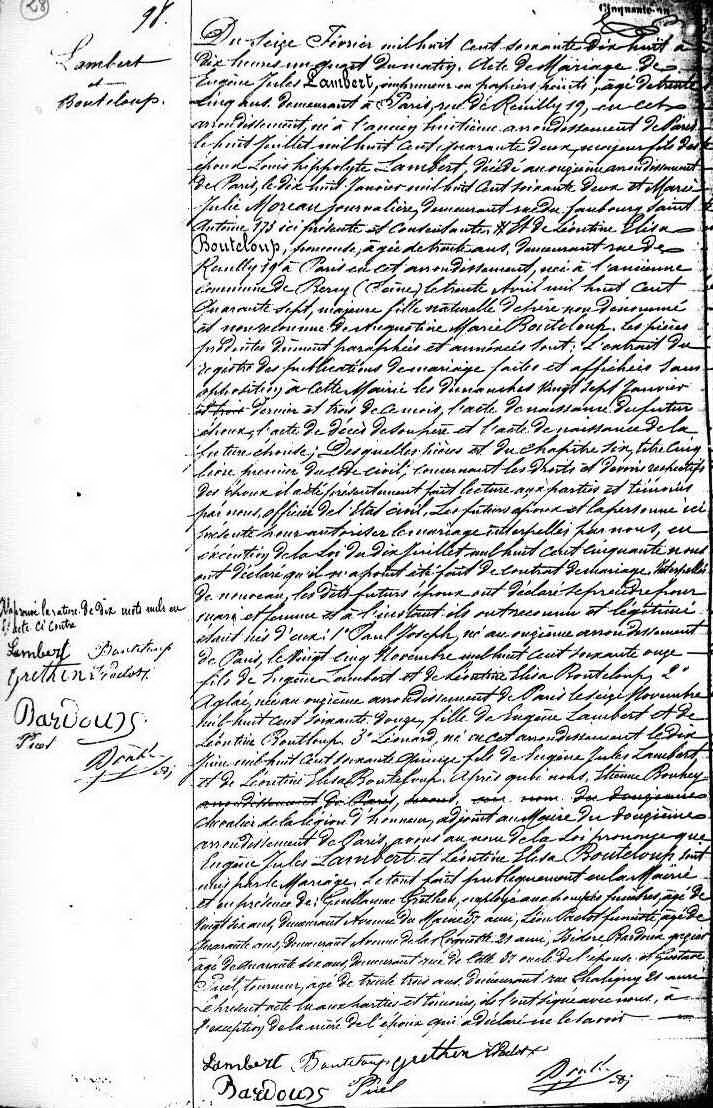 28
98.
Cinquante-un
Lambert
et
Bouteloup.
Du seize Février mil huit cent soixante dix huit à
dix heures un quart du matin. Acte de Mariage de
Eugène Jules Lambert, imprimeur en papiers peints, âgé de trente
cinq ans, demeurant à Paris, rue de Reuilly 19, en cet
arrondissement, né à l'ancien huitième arrondissement de Paris
le huit Juillet mil huit cent quarante deux, majeur fils des
époux Louis hippolyte Lambert, décédé au onzième arrondissement
de Paris, le dix huit Janvier mil huit cent soixante deux et Marie
Julie Moreau journalière, demeurant rue du faubourg Saint
Antoine 175 ici présente et consentante. Et de Léontine Elisa
Bouteloup, ponceuse, âgée de trente ans, demeurant rue de
Reuilly 19 à Paris en cet arrondissement, née à l'ancienne
commune de Bercy (Seine) le trente Avril mil huit cent
quarante sept, majeure fille naturelle de père non dénommé
et non reconnue de Augustine Marie Bouteloup. Les pièces
produites dûment paraphées et annexées sont: L'extrait du
registre des publications de mariage faites et affichées sans
opposition à cette Mairie les dimanches vingt sept Janvier
et trois dernier et trois de ce mois, l'acte de naissance du futur
époux, l'acte de décès de son père et l'acte de naissance de la
future épouse; Desquelles pièces et du chapitre six, titre cinq
livre premier du Code civil, concernant les droits et devoirs respectifs
des époux il a été présentement fait lecture aux parties et témoins
par nous, officier de l'état civil. Les futurs époux et la personne ici
présente pour autoriser le mariage interpellés par nous, en
exécution de la loi du dix Juillet mil huit cent cinquante nous
ont déclaré qu'il n'a point été fait de contrat de mariage. Interpellés
de nouveau, les dits futurs époux ont déclaré se prendre pour
mari et femme et à l'instant ils ont reconnu et légitimé
étant nés d'eux: 1° Paul Joseph, né au onzième arrondissement
de Paris, le vingt cinq Novembre mil huit cent soixante onze
fils de Eugène Lambert et de Léontine Elisa Bouteloup, 2°
Aglaé, née au onzième arrondissement de Paris le seize Novembre
mil huit cent soixante douze, fille de Eugène Lambert et de
Léontine Bouteloup. 3° Léonard, né en cet arrondissement le dix
mil huit cent soixante quinze fils de Eugène Jules Lambert,
et de Léontine Elisa Bouteloup. Après quoi nous, Etienne
arrondissement de Paris, avons, au nom du douzième
chevalier de la légion d'honneur, adjoint au Maire du douzième
arrondissement de Paris, avons au nom de la Loi prononcé que
Eugène Jules Lambert et Léontine Elisa Bouteloup sont
unis par le Mariage. Le tout fait publiquement en la Mairie
et en présence de: Guillaume Grethen, employé aux pompes funèbres, âgé de
vingt six ans, demeurant Avenue du Maine ami; Léon âgé de
quarante ans, demeurant Avenue de la Roquette 21 ami; Isidore Bardoux
âgé de quarante six ans, demeurant rue de oncle de l'épouse et Gustave
Piel, tourneur, âgé de trente trois ans, demeurant rue Chaligny 21 ami
Le présent acte lu aux parties et témoins, ils l'ont signé avec nous, à
l'exception de la mère de l'époux qui a déclaré ne le savoir
Approuvé la rature de dix mots nuls en
l'acte ci contre
Lambert Bouteloup
Grethen
Bardoux
Piel
Lambert Bouteloup Grethen
Bardoux Piel